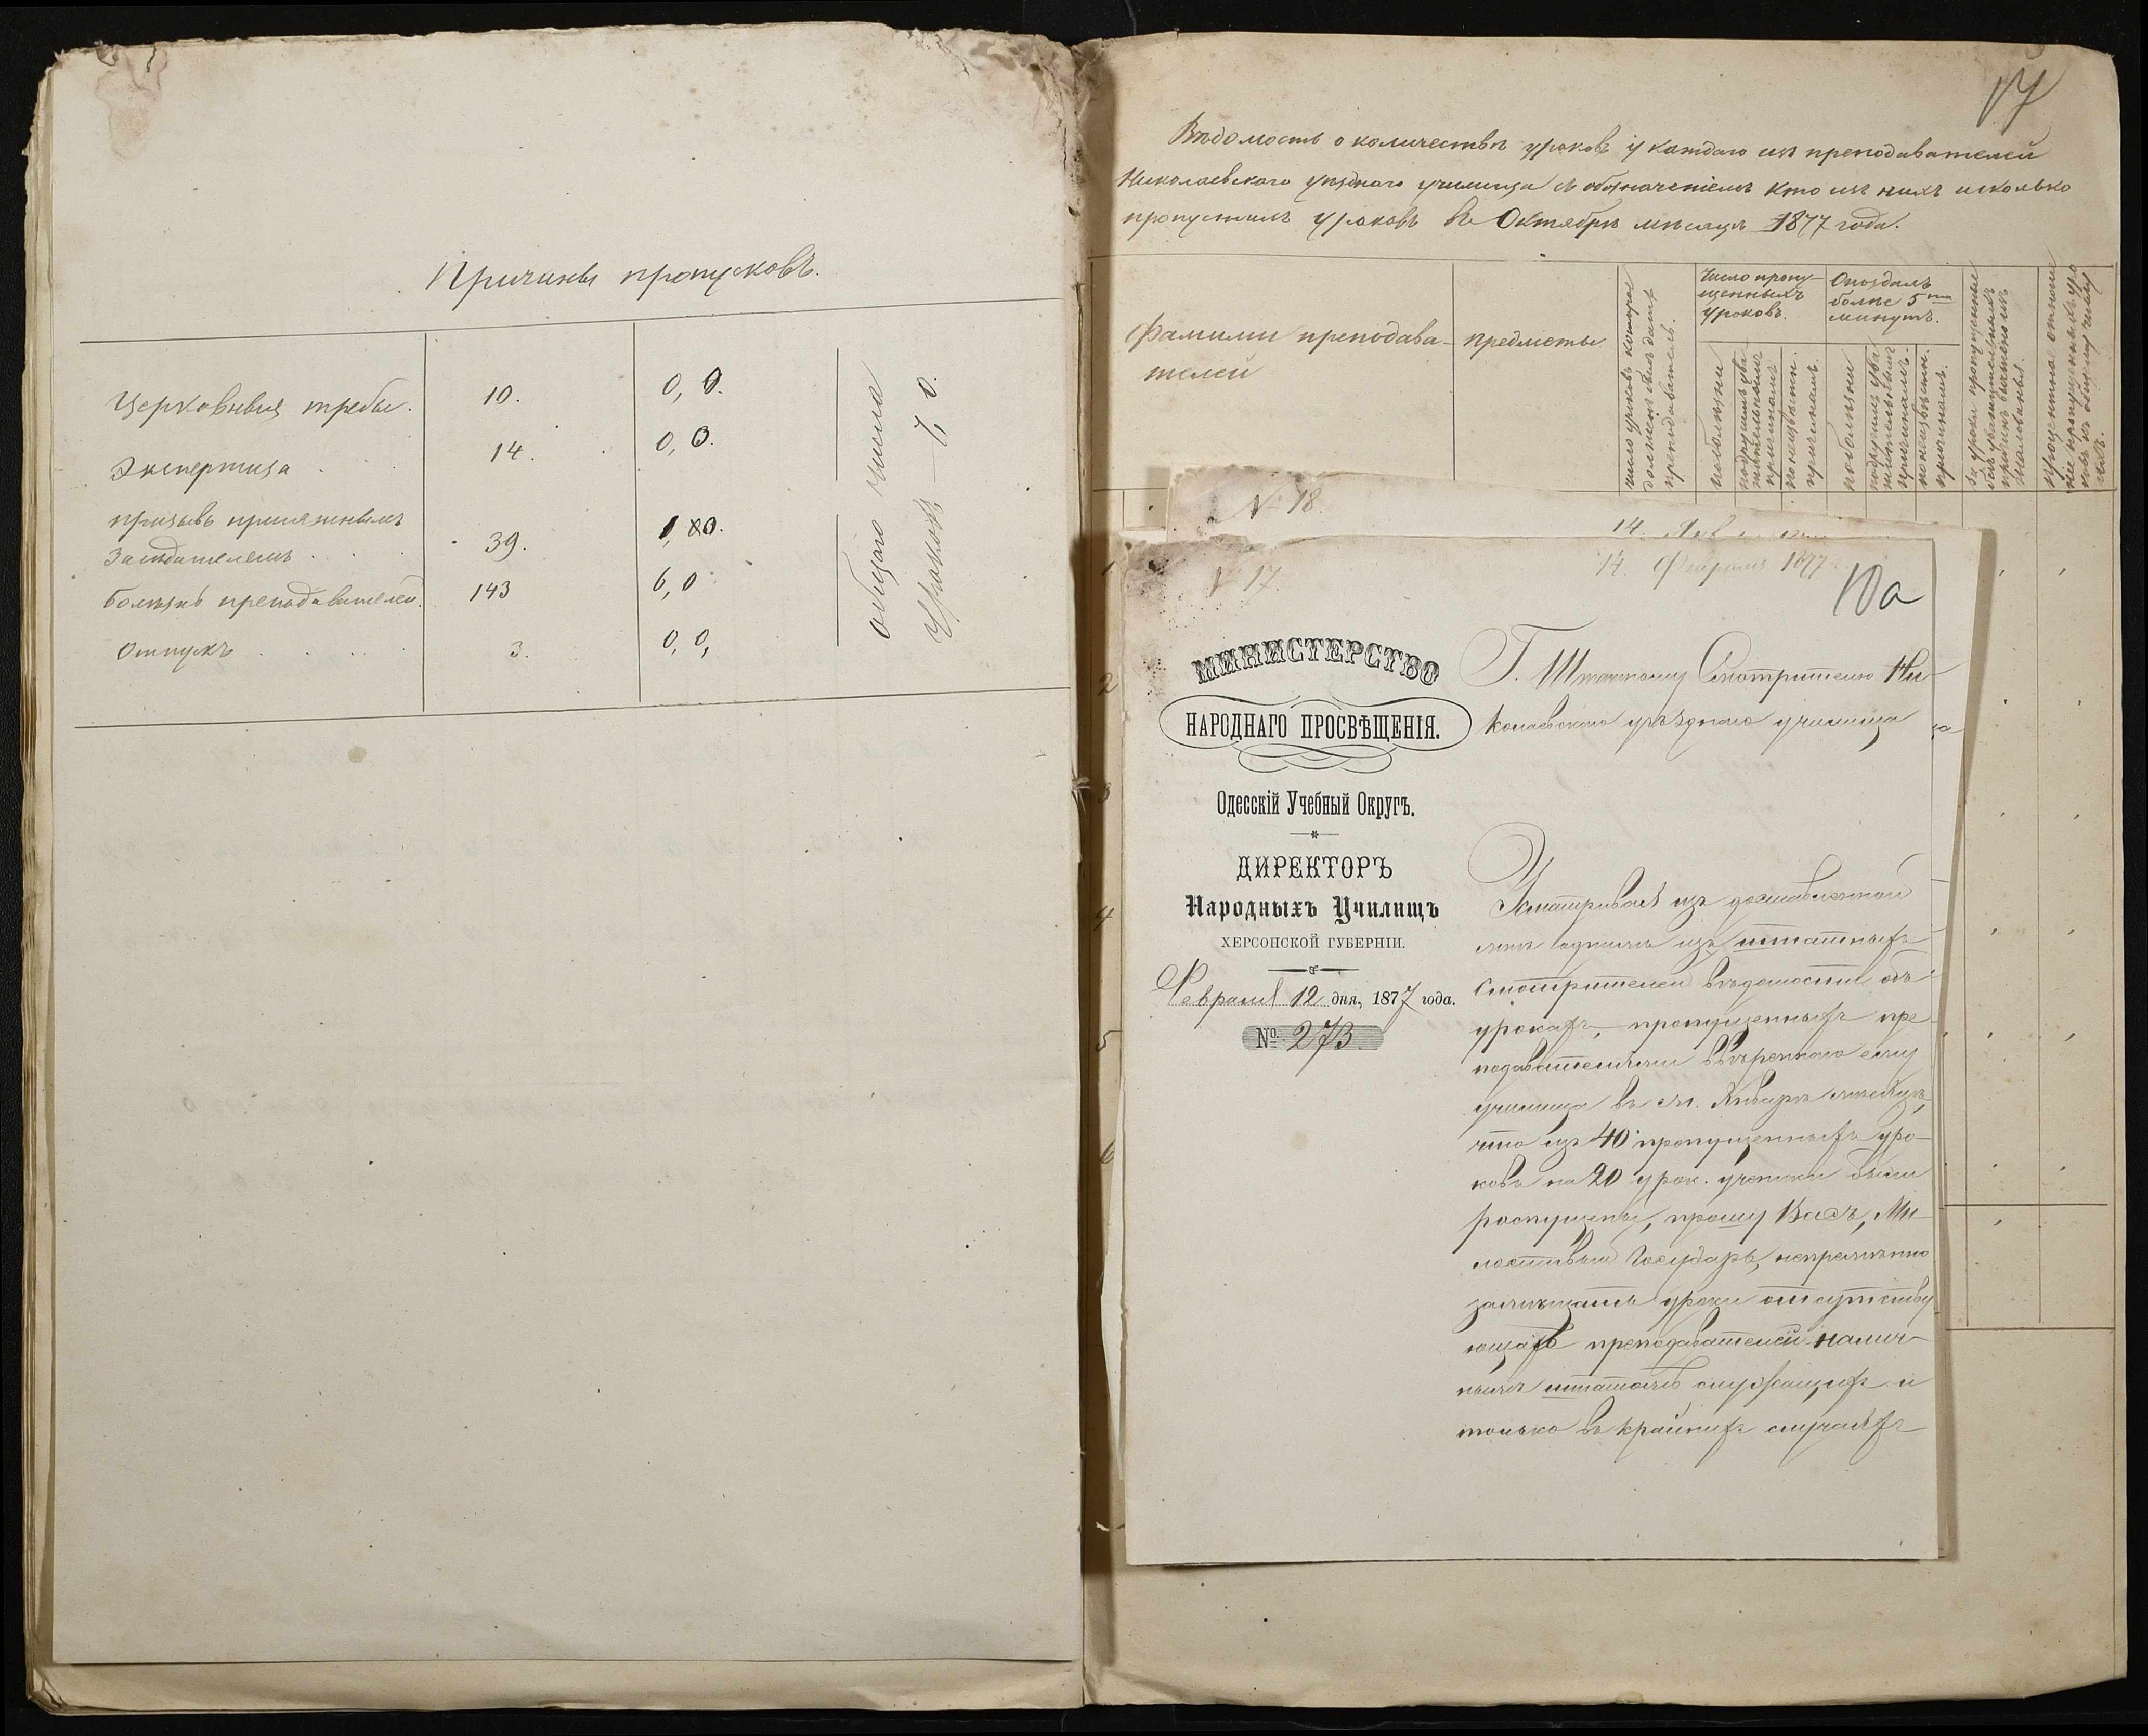 Причины пропусковъ.
Церковныя требы. 10. 0, 0.
Экспертиза 14. 0, 0.
призывъ присяжнымъ
Засѣдателемъ 39.
Болѣзнь преподавателей. 143 6, 0
Отпускъ 3. 0, 0,
общаго числа
Уроковъ
17
Вѣдомость о количествѣ уроковъ у каждаго изъ преподавателей
Николаевскаго уѣзднаго училища съ обозначеніемъ кто изъ нихъ и сколько
пропустилъ уроковъ въ Октябрѣ мѣсяцѣ 1877 года.
Фамиліи преподава-
телей
предметы
число уроковъ которые
долженъ былъ дать
преподаватель.
Число пропу-
щенныхъ
уроковъ.
по болѣзни
по другимъ ува-
жительнымъ
причинамъ
по неизвѣстн.
причинамъ.
Опоздалъ
болѣе 5ти
минутъ.
по болѣзни
по другимъ ува-
жительнымъ
причинамъ.
по неизвѣстн.
причинамъ.
За уроки пропущенные
безъ уважительныхъ
причинъ вычтено изъ
жалованья.
№ 18.
14.
№ 17.
14. Февраля 1877
10а
МИНИСТЕРСТВО
НАРОДНАГО ПРОСВѢЩЕНІЯ.
Одесскій Учебный Округъ.
ДИРЕКТОРЪ
Народныхъ Училищъ
ХЕРСОНСКОЙ ГУБЕРНІИ.
Февраля 12 дня, 1877 года.
№ 273.
Г. Штатному Смотрителю Ни-
колаевскаго уѣзднаго училища
Усматривая изъ доставленной
мнѣ однимъ изъ штатныхъ
Смотрителей вѣдомости объ
урокахъ, пропущенныхъ пре-
подавателями ввѣреннаго ему
училища въ м. Январѣ
что изъ 40 пропущенныхъ уро-
ковъ на 20 урок. ученики были
распущены, прошу Васъ, Ми-
лостивый Государь, непремѣнно
замѣщать уроки отсутству-
ющихъ преподавателей налич-
нымъ штатомъ служащихъ и
только въ крайнихъ случаяхъ
1
2
3
4
5
6